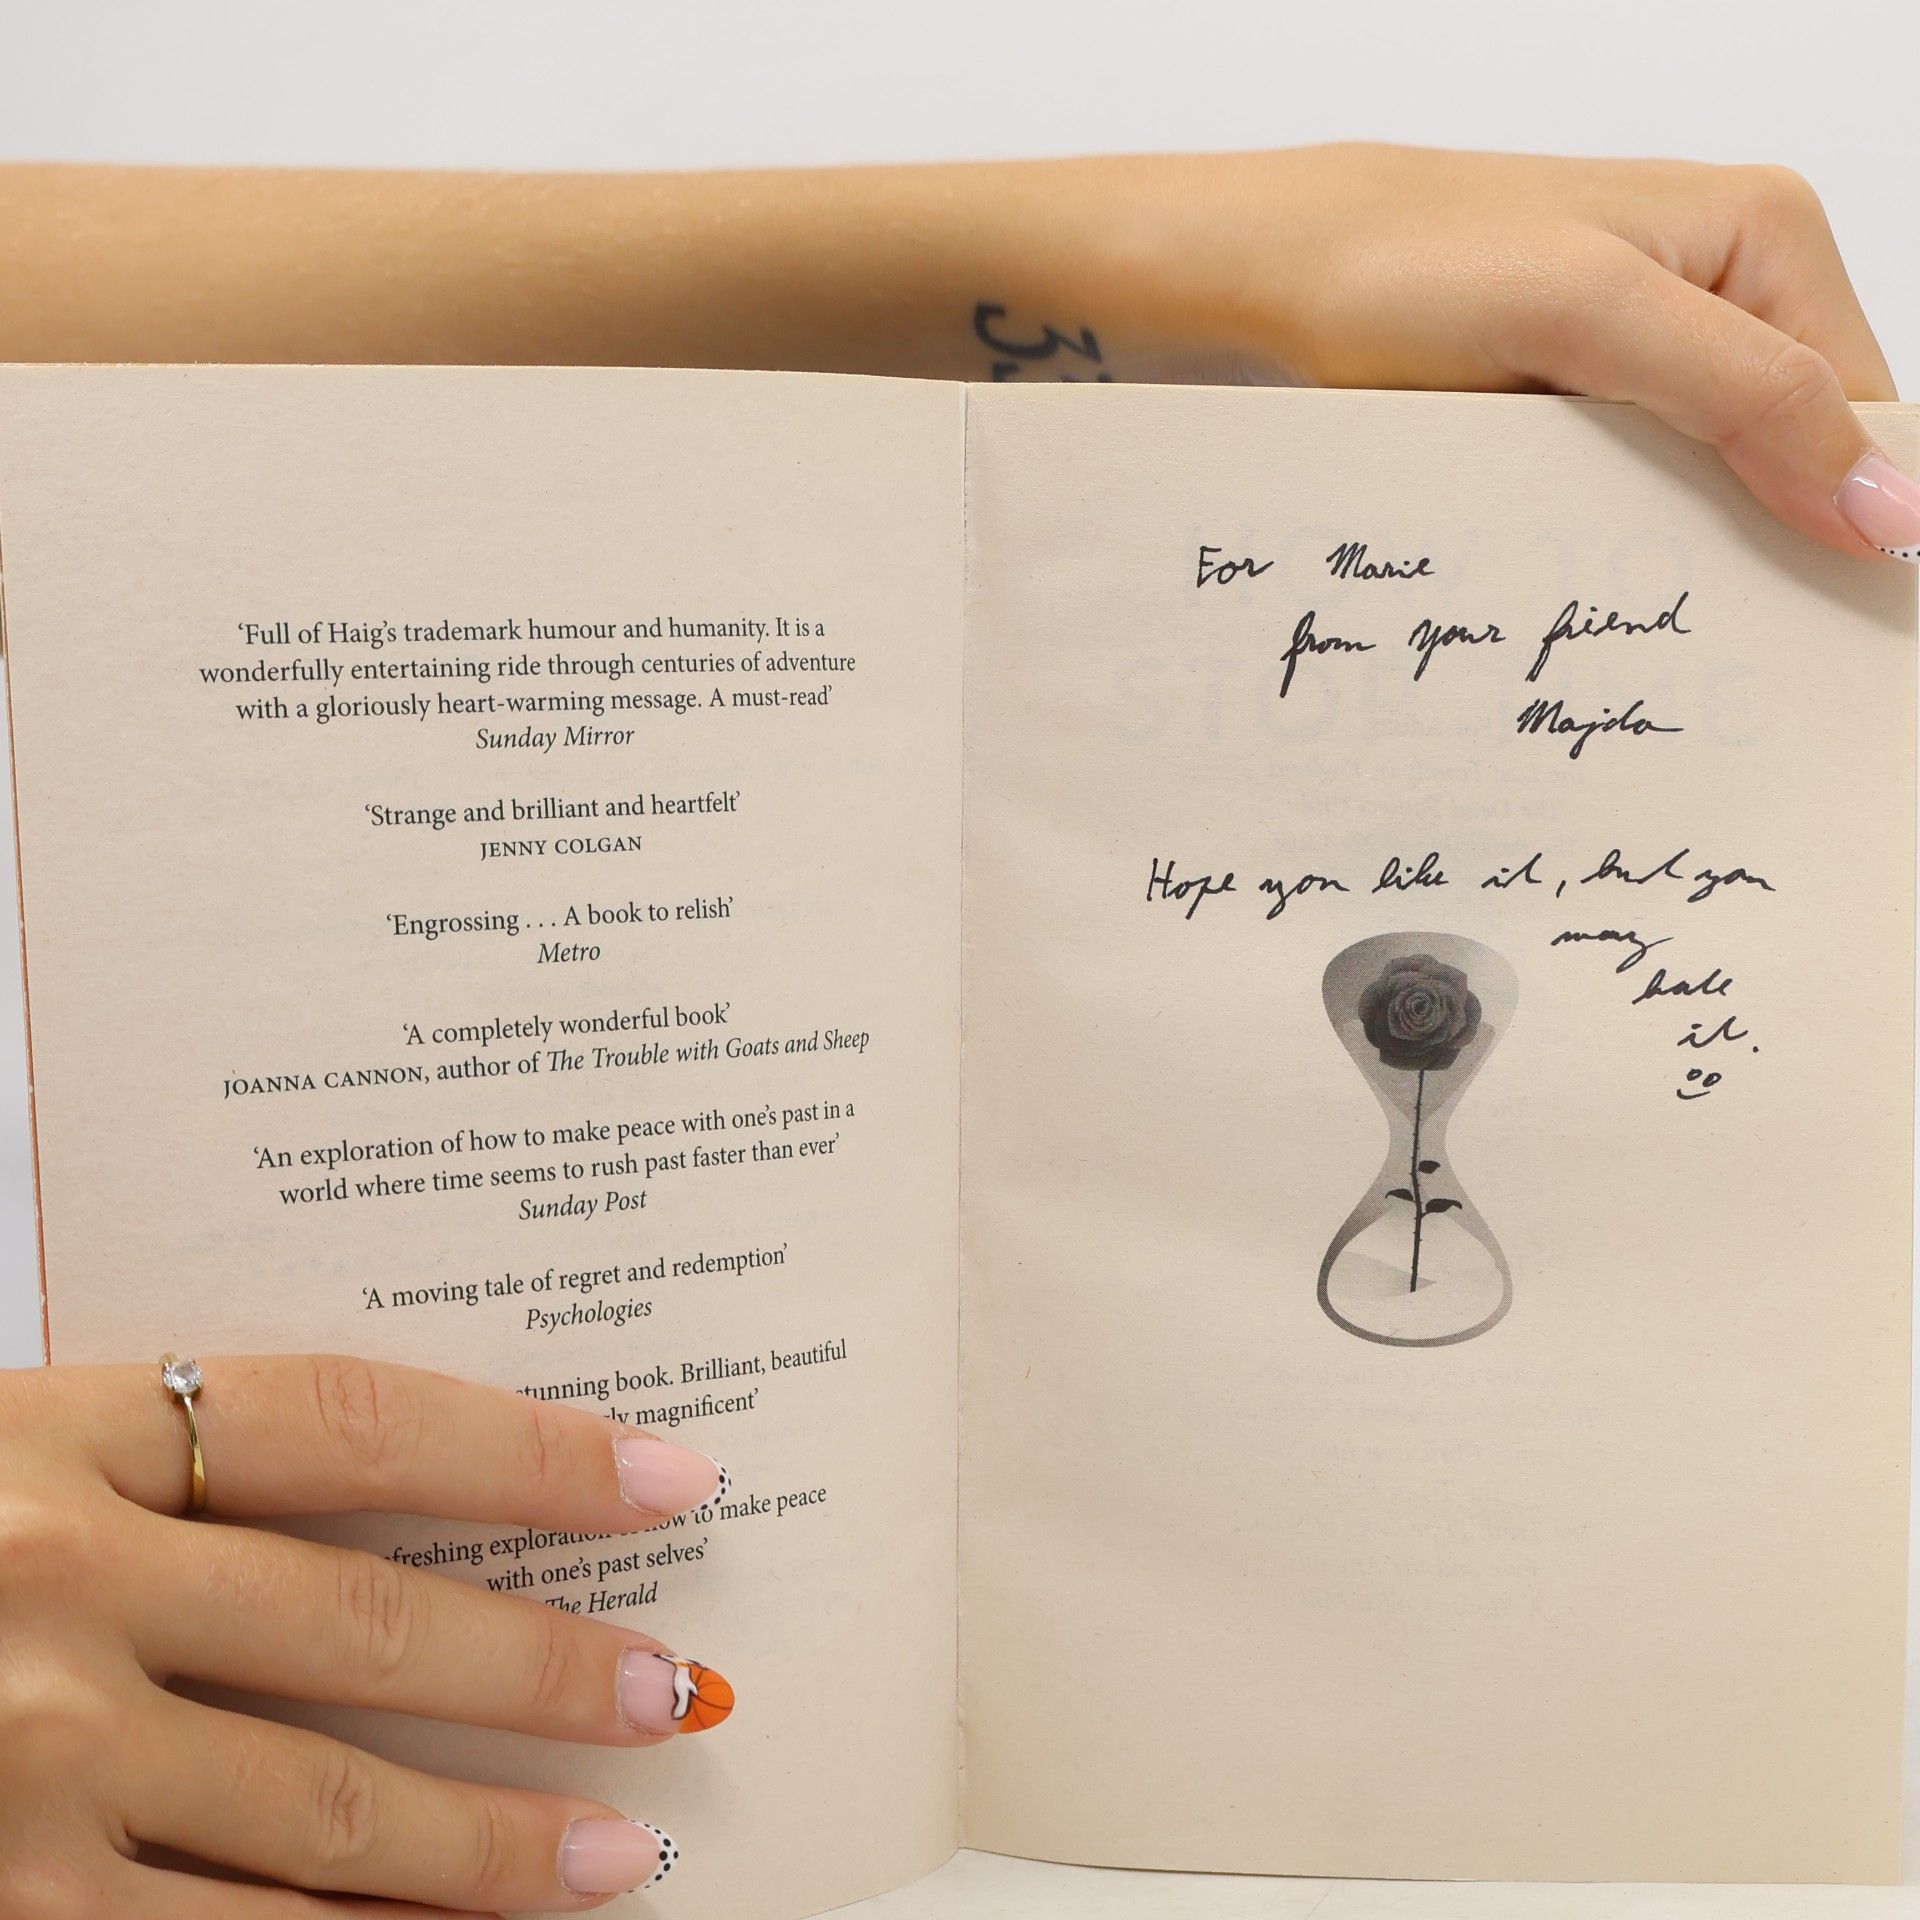 ‘Full of Haig’s trademark humour and humanity. It is a
wonderfully entertaining ride through centuries of adventure
with a gloriously heart-warming message. A must-read’
Sunday Mirror
‘Strange and brilliant and heartfelt’
JENNY COLGAN
‘Engrossing . . . A book to relish’
Metro
‘A completely wonderful book’
JOANNA CANNON, author of The Trouble with Goats and Sheep
‘An exploration of how to make peace with one’s past in a
world where time seems to rush past faster than ever’
Sunday Post
‘A moving tale of regret and redemption’
Psychologies
book. Brilliant, beautiful
magnificent’
make peace
with one’s past selves’
The Herald
For Marie
from your friend
Majda
Hope you like it, but you
may
hate
it.